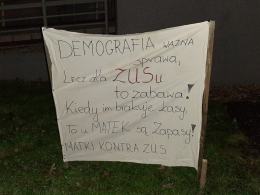 DEMOGRAFIA WAŻNA
sprawa,
Lecz dla ZUSu
to zabawa!
Kiedy im brakuje kasy,
To u MATEK są Zapasy!
MATKI KONTRA ZUS